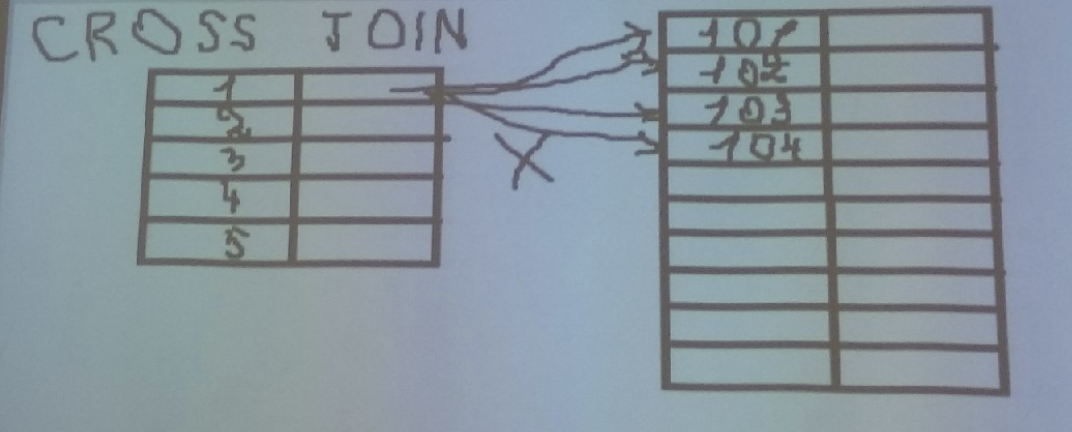 CROSS JOIN
1
2
3
4
5
X
101
102
103
104